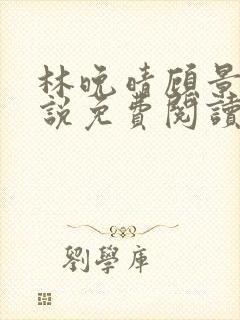 林晚晴顾景
說免費閱讀
劉學庫